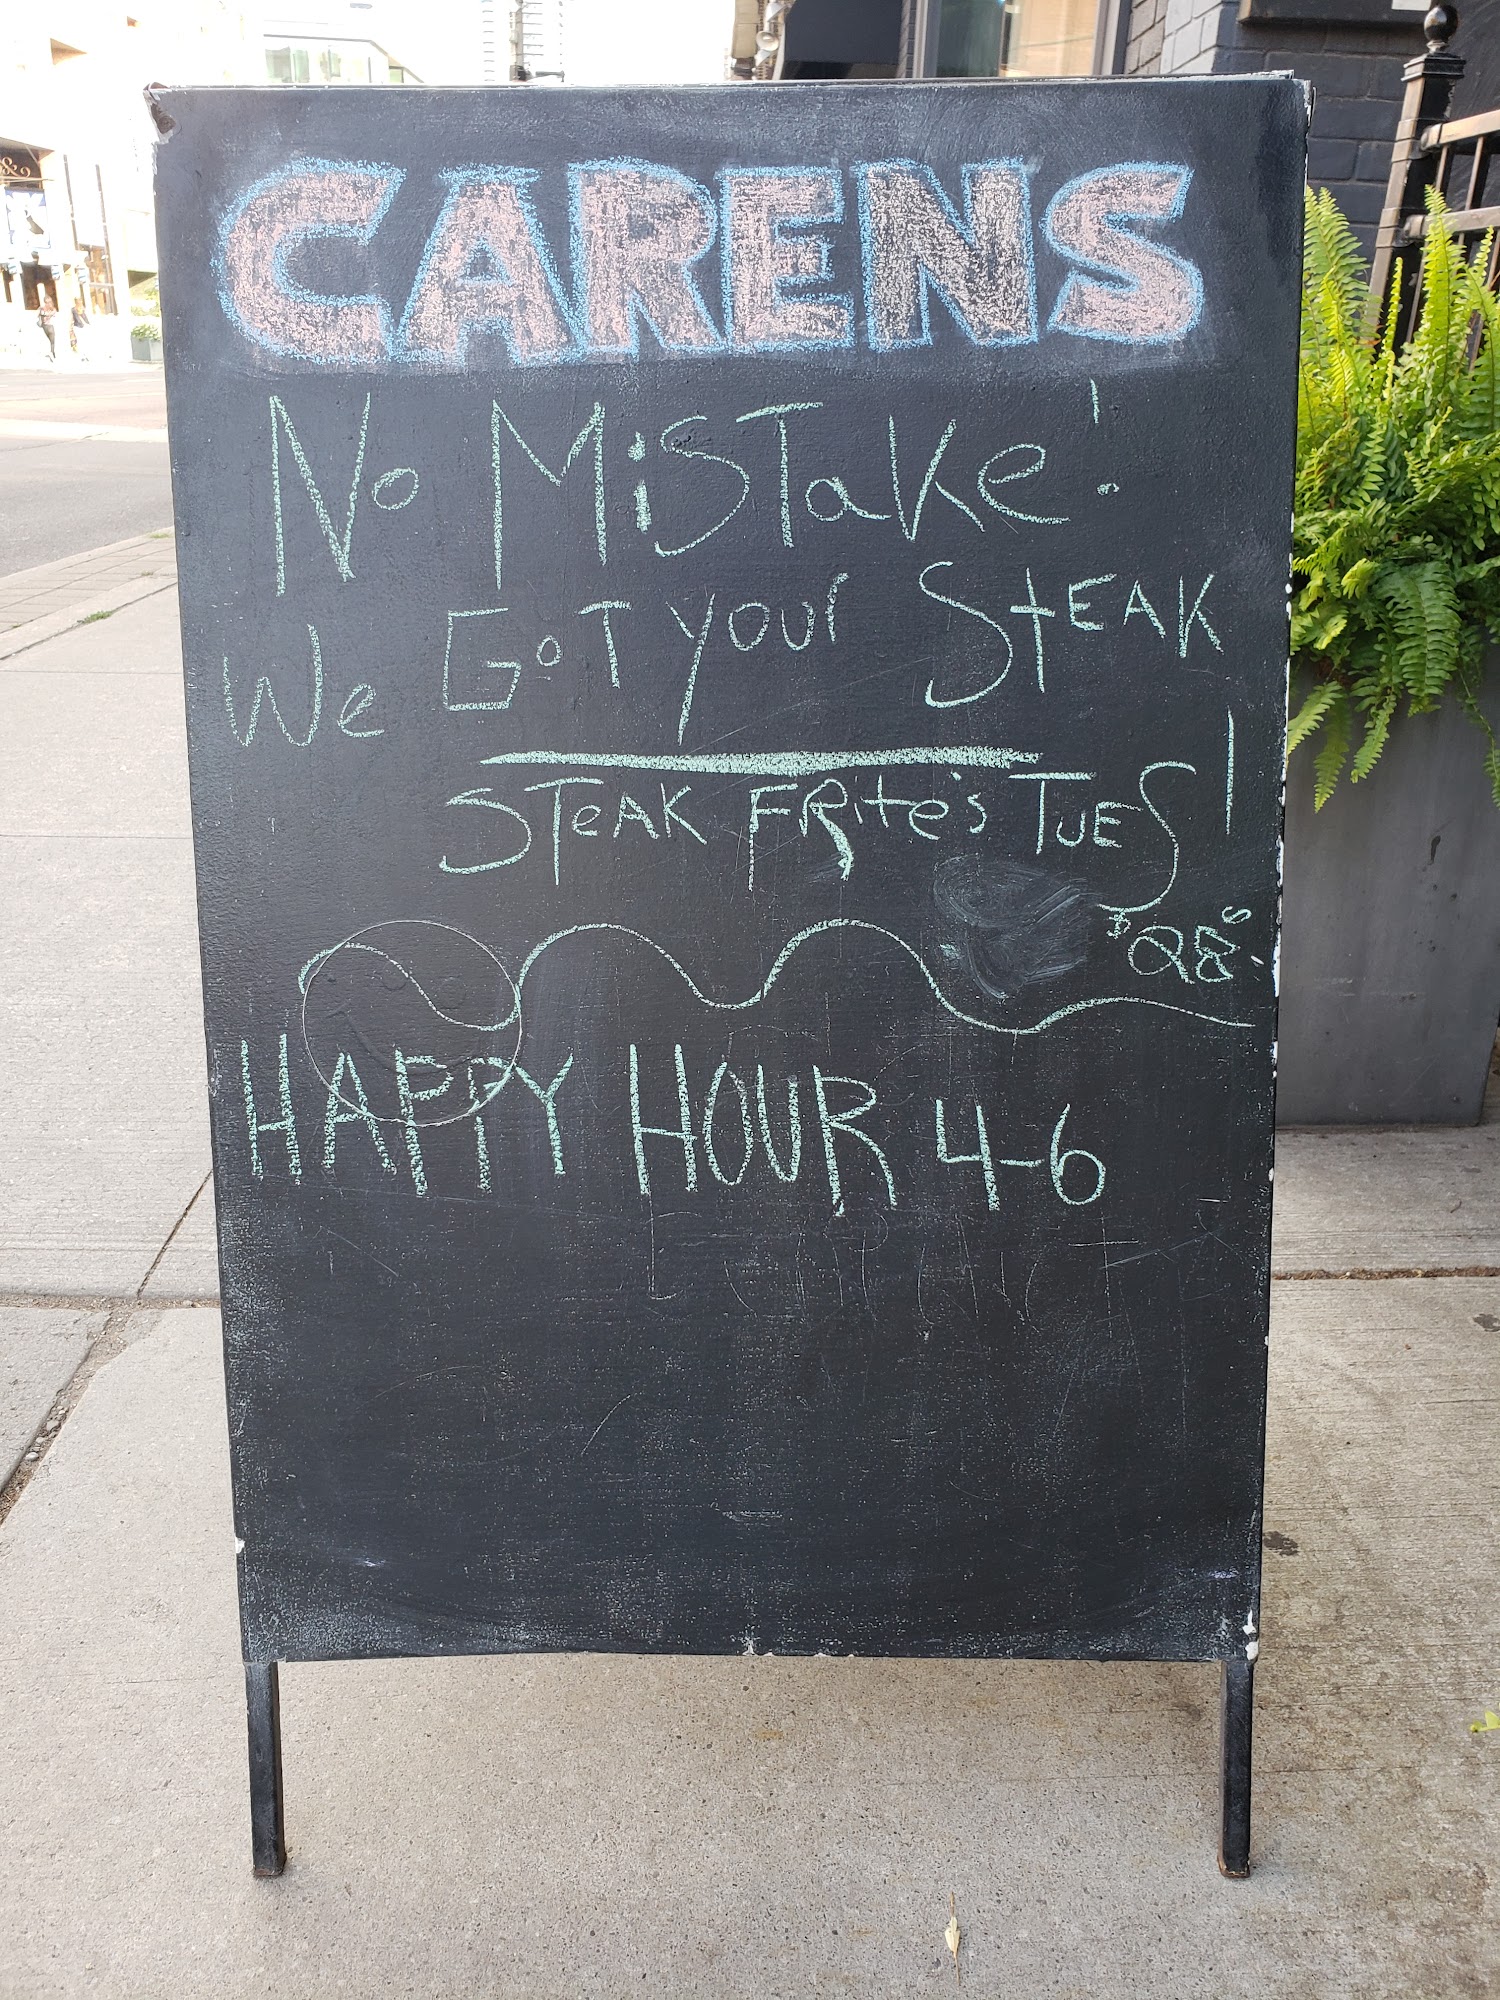 CARENS
No MiSTake!
We GoT your StEAK
STeAK FRite's TUES!
$28
HAPPY HOUR 4-6